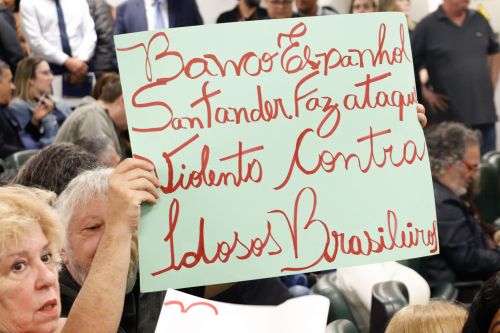 Banco Espanhol
Santander Faz ataque
Violento Contra
Idosos Brasileiros